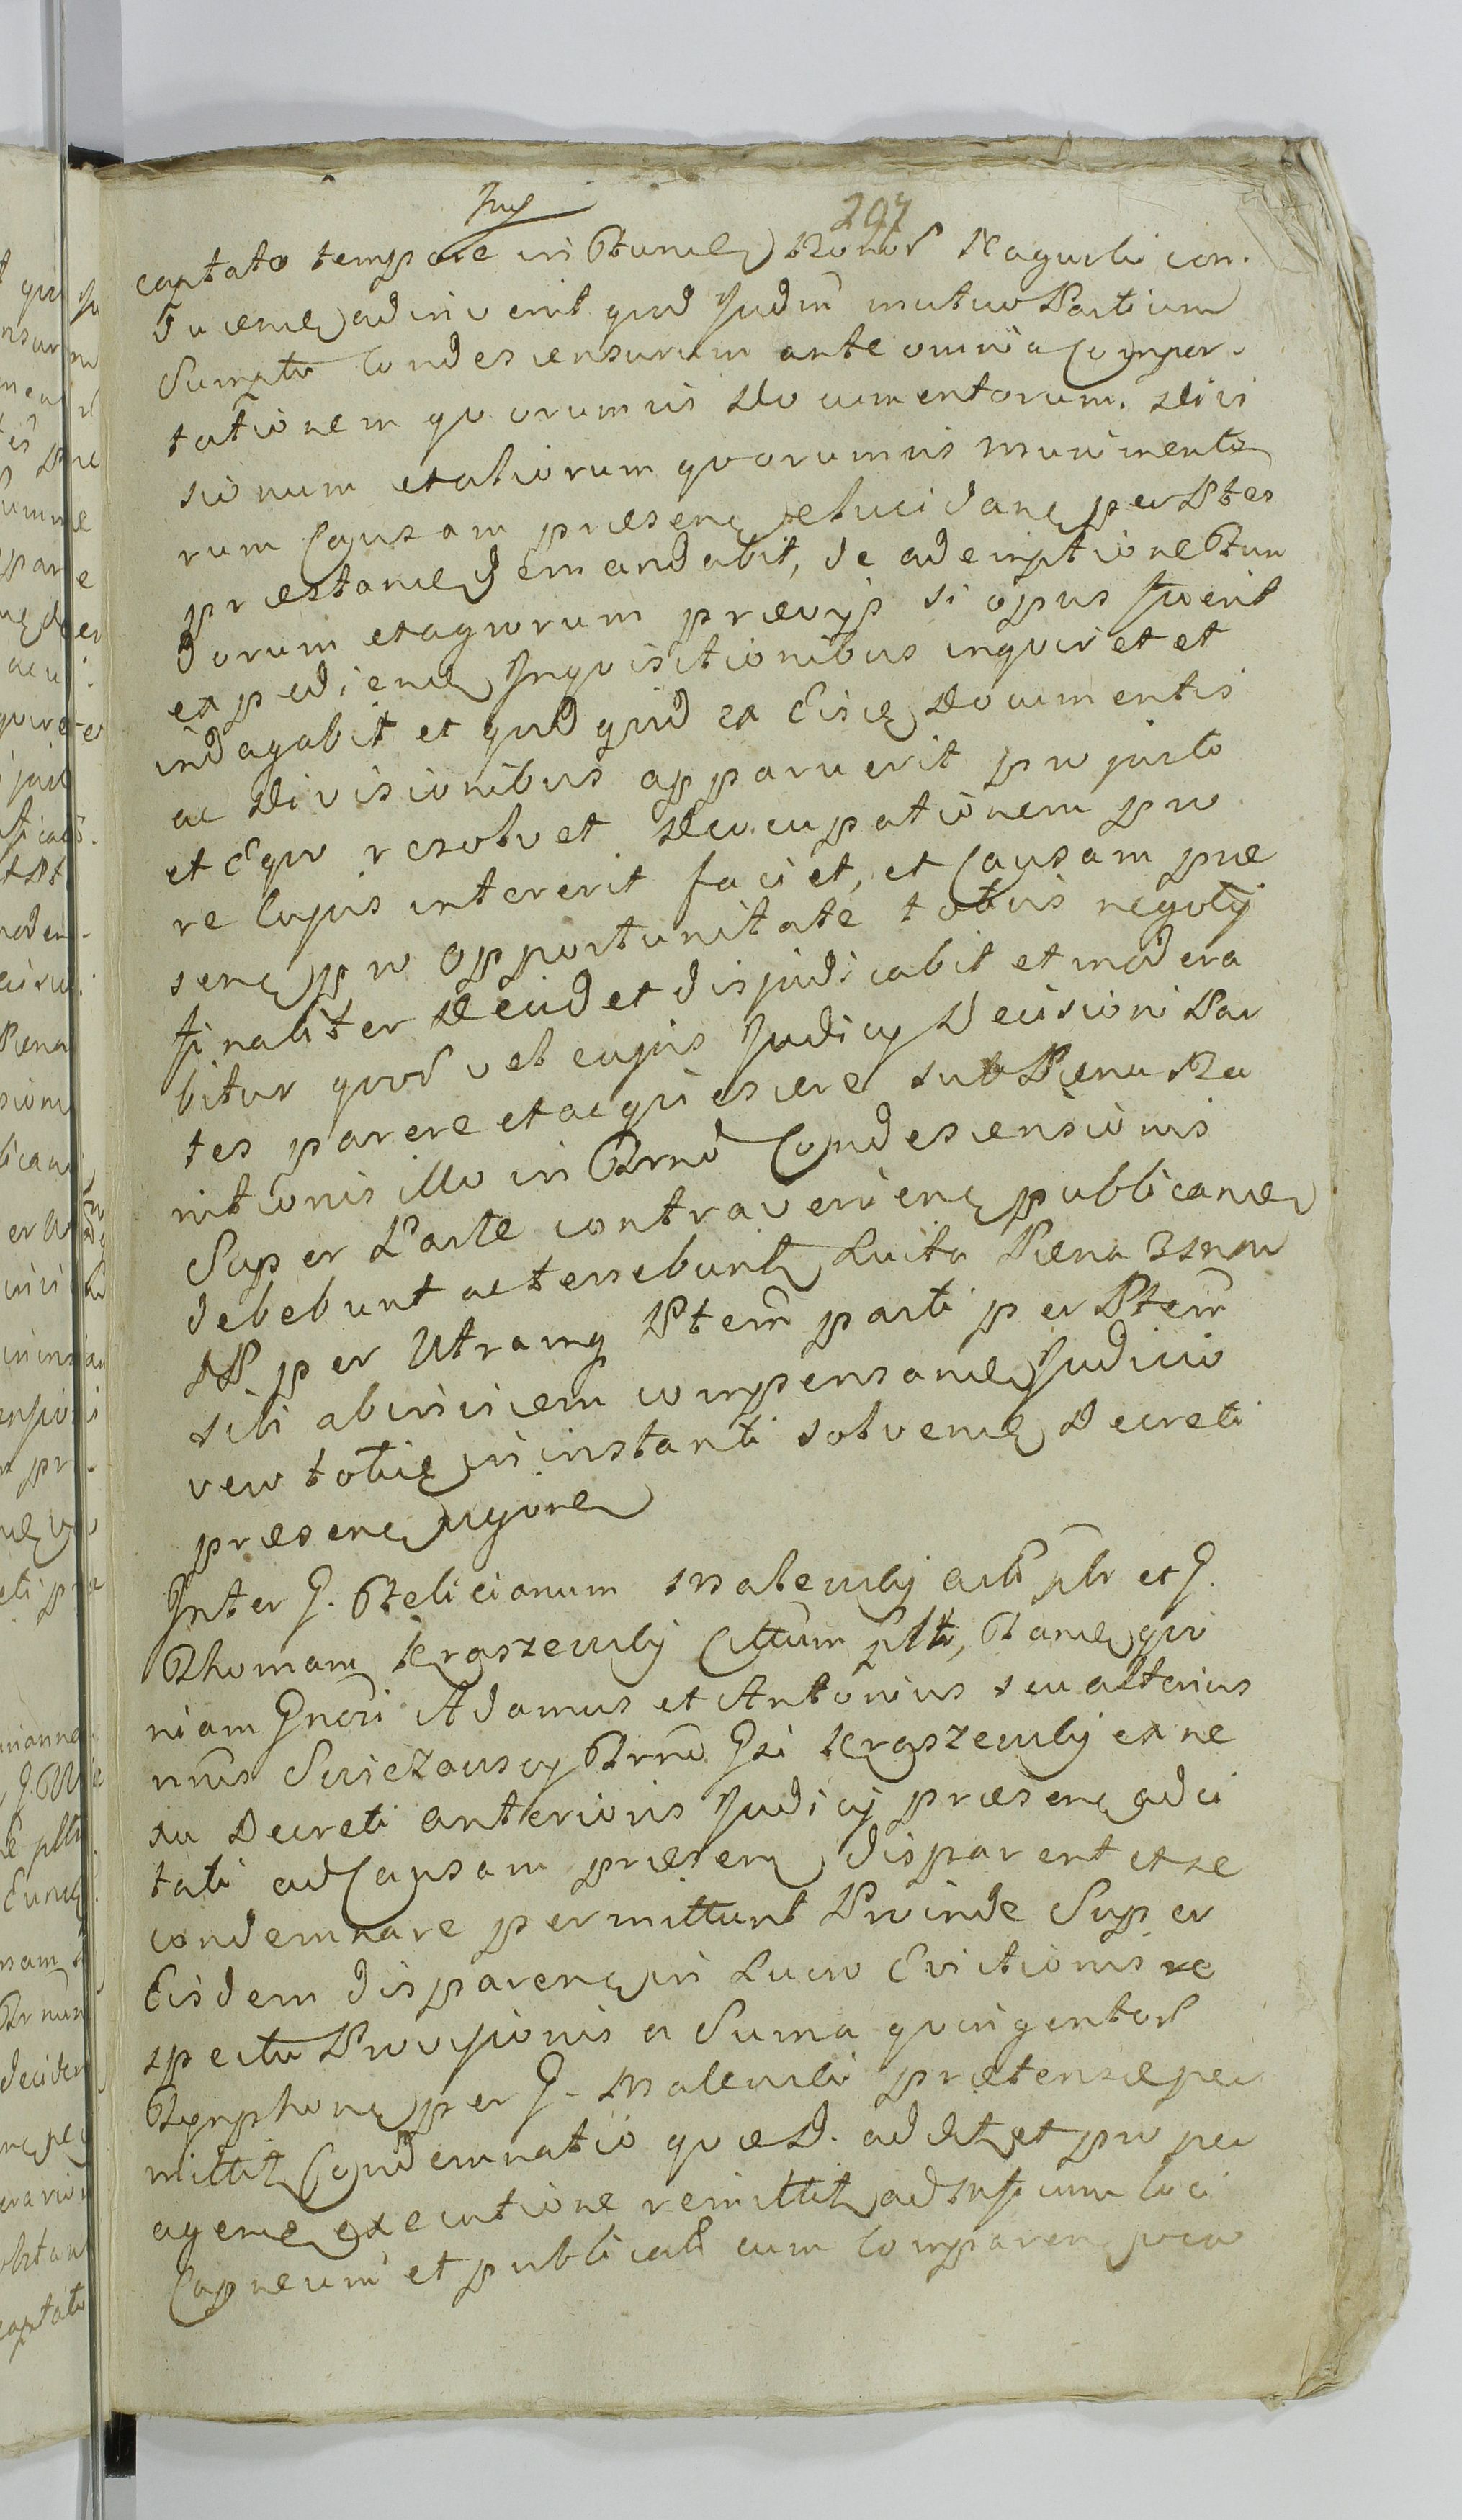 297
captato tempore in Fundũ Bonor Nagurki con
ducend adinvenit quod Judm mutuo Partium
Sumptu Condescensurum ante omnia Compor
tationem quorumvis Documentorum. Divi
sionum et aliorum quorumvis munimento
rum Causam præsen elucidan per Ptes
præstand demandabit, de ademptione Fun
dorum et agrorum prævijs si opus fuerit
expediend Inquisitionibus inquiret et
indagabit et quidquid ex Eisd Documentis
ac Divisionibus apparuerit pro justo
et Equo resolvet Deoccupationem pro
re cujus intererit faciet, et Causam præ
sen pro opportunitate totius negotij
finaliter Decidet dijudicabit et modera
bitur quor vel cujus Judicij Decisioni Par
tes parere et acquiescere sub Pæna Ba
nitionis illo in Trno Condescensionis
Super Parte contravenien publicand
debebunt ac tenebunt Luita Pæna 3 Mar
PP per Utramq Ptem parti per Ptem
sibi abinvicem compensand Judicio
vero totie in instanti solvend Decreti
præsen vigore
Inter G. Felicianum Malewskij act plr et G.
Thomam Kraszewskij Cittum pltt, Tand quo
niam Gnosi Adamus et Antonius seu alterius
nnis Swieżawscy Frni Gsi Kraszewskij ex ne
xu Decreti anterioris Judicij præsen adci
tati ad Causam præsen disparent et se
condemnare permittunt Proinde Super
Eisdem disparen in Lucro Evictionis re
spectu Provisionis a Suma quingentor
Tynphon per G. Malewski prætensæ per
mittit Condemnatio quæ D. addit et pro per
agend executione remittit ad Offcium loci
Capneum et publicat cum Comparen vero